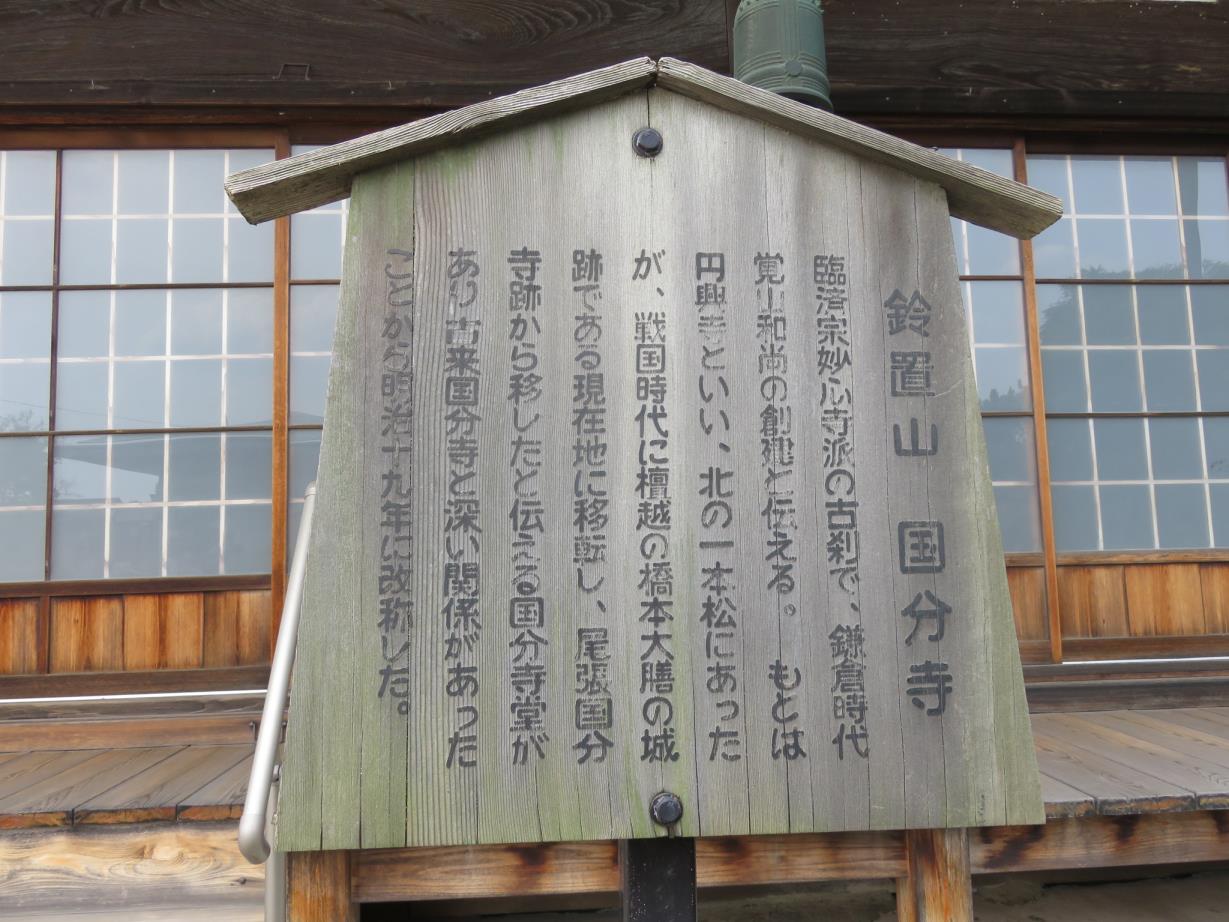 鈴置山 国分寺
臨済宗妙心寺派の古刹で、鎌倉時代
覚山和尚の創建と伝える。もとは
円興寺といい、北の一本松にあった
が、戦国時代に檀越の橋本大膳の城
跡である現在地に移転し、尾張国分
寺跡から移したと伝える国分寺堂が
あり古来国分寺と深い関係があった
ことから明治十九年に改称した。